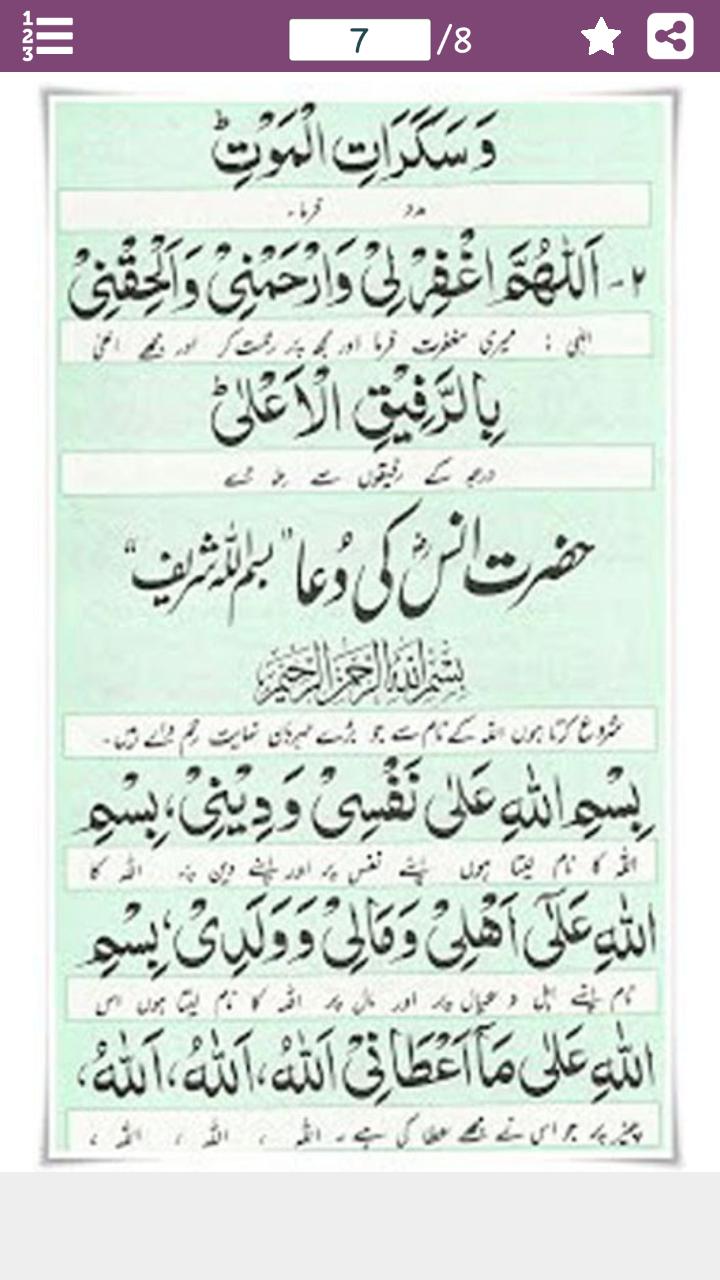 1
2
3
7 /8
وَسَكَرَاتِ الْمَوْتِ ؕ
مدد فرما۔
۲۔ اَللّٰهُمَّ اغْفِرْ لِیْ وَارْحَمْنِیْ وَاَلْحِقْنِیْ
الٰہی : میری مغفرت فرما اور مجھ پر رحمت کر اور مجھے اعلیٰ
بِالرَّفِیْقِ الْاَعْلٰی ؕ
درجہ کے رفیقوں سے ملا دے
حضرت انسؓ کی دُعا "بسم اللہ شریف"
بِسْمِ اللهِ الرَّحْمٰنِ الرَّحِيْمِ
شروع کرتا ہوں اللہ کے نام سے جو بڑے مہربان نہایت رحم والے ہیں۔
بِسْمِ اللهِ عَلٰی نَفْسِیْ وَ دِیْنِیْ، بِسْمِ
اللہ کا نام لیتا ہوں اپنے نفس پر اور اپنے دین پر۔ اللہ کا
اللهِ عَلٰٓی اَهْلِیْ وَمَالِیْ وَوَلَدِیْ، بِسْمِ
نام اپنے اہل و عیال پر اور مال پر اللہ کا نام لیتا ہوں اس
اللهِ عَلٰی مَآ اَعْطَانِیْ اَللهُ، اَللهُ، اَللهُ،
چیز پر جو اس نے مجھے عطا کی ہے۔ اللہ ، اللہ ، اللہ ،